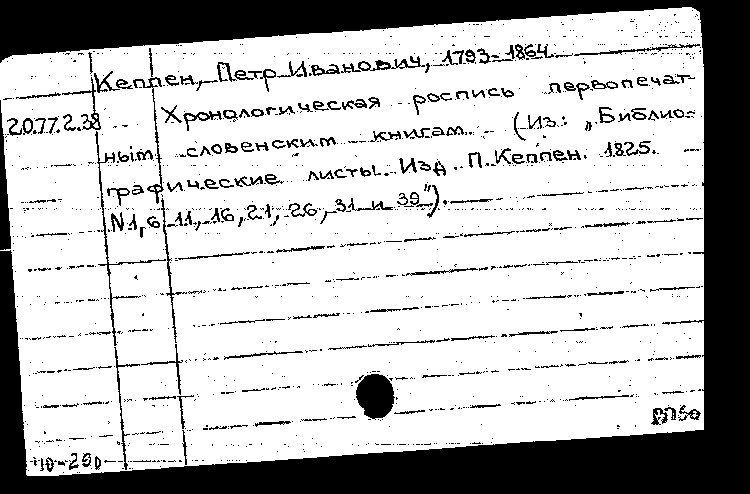 Кеппен, Петр Иванович, 1793-1864
20.77.2.38 Хронологическая роспись первопечат-
ным словенским книгам (Из: „Библио-
графические листы. Изд. П. Кеппен. 1825.
N 1, 6 11, 16, 21, 26, 31 и 39").